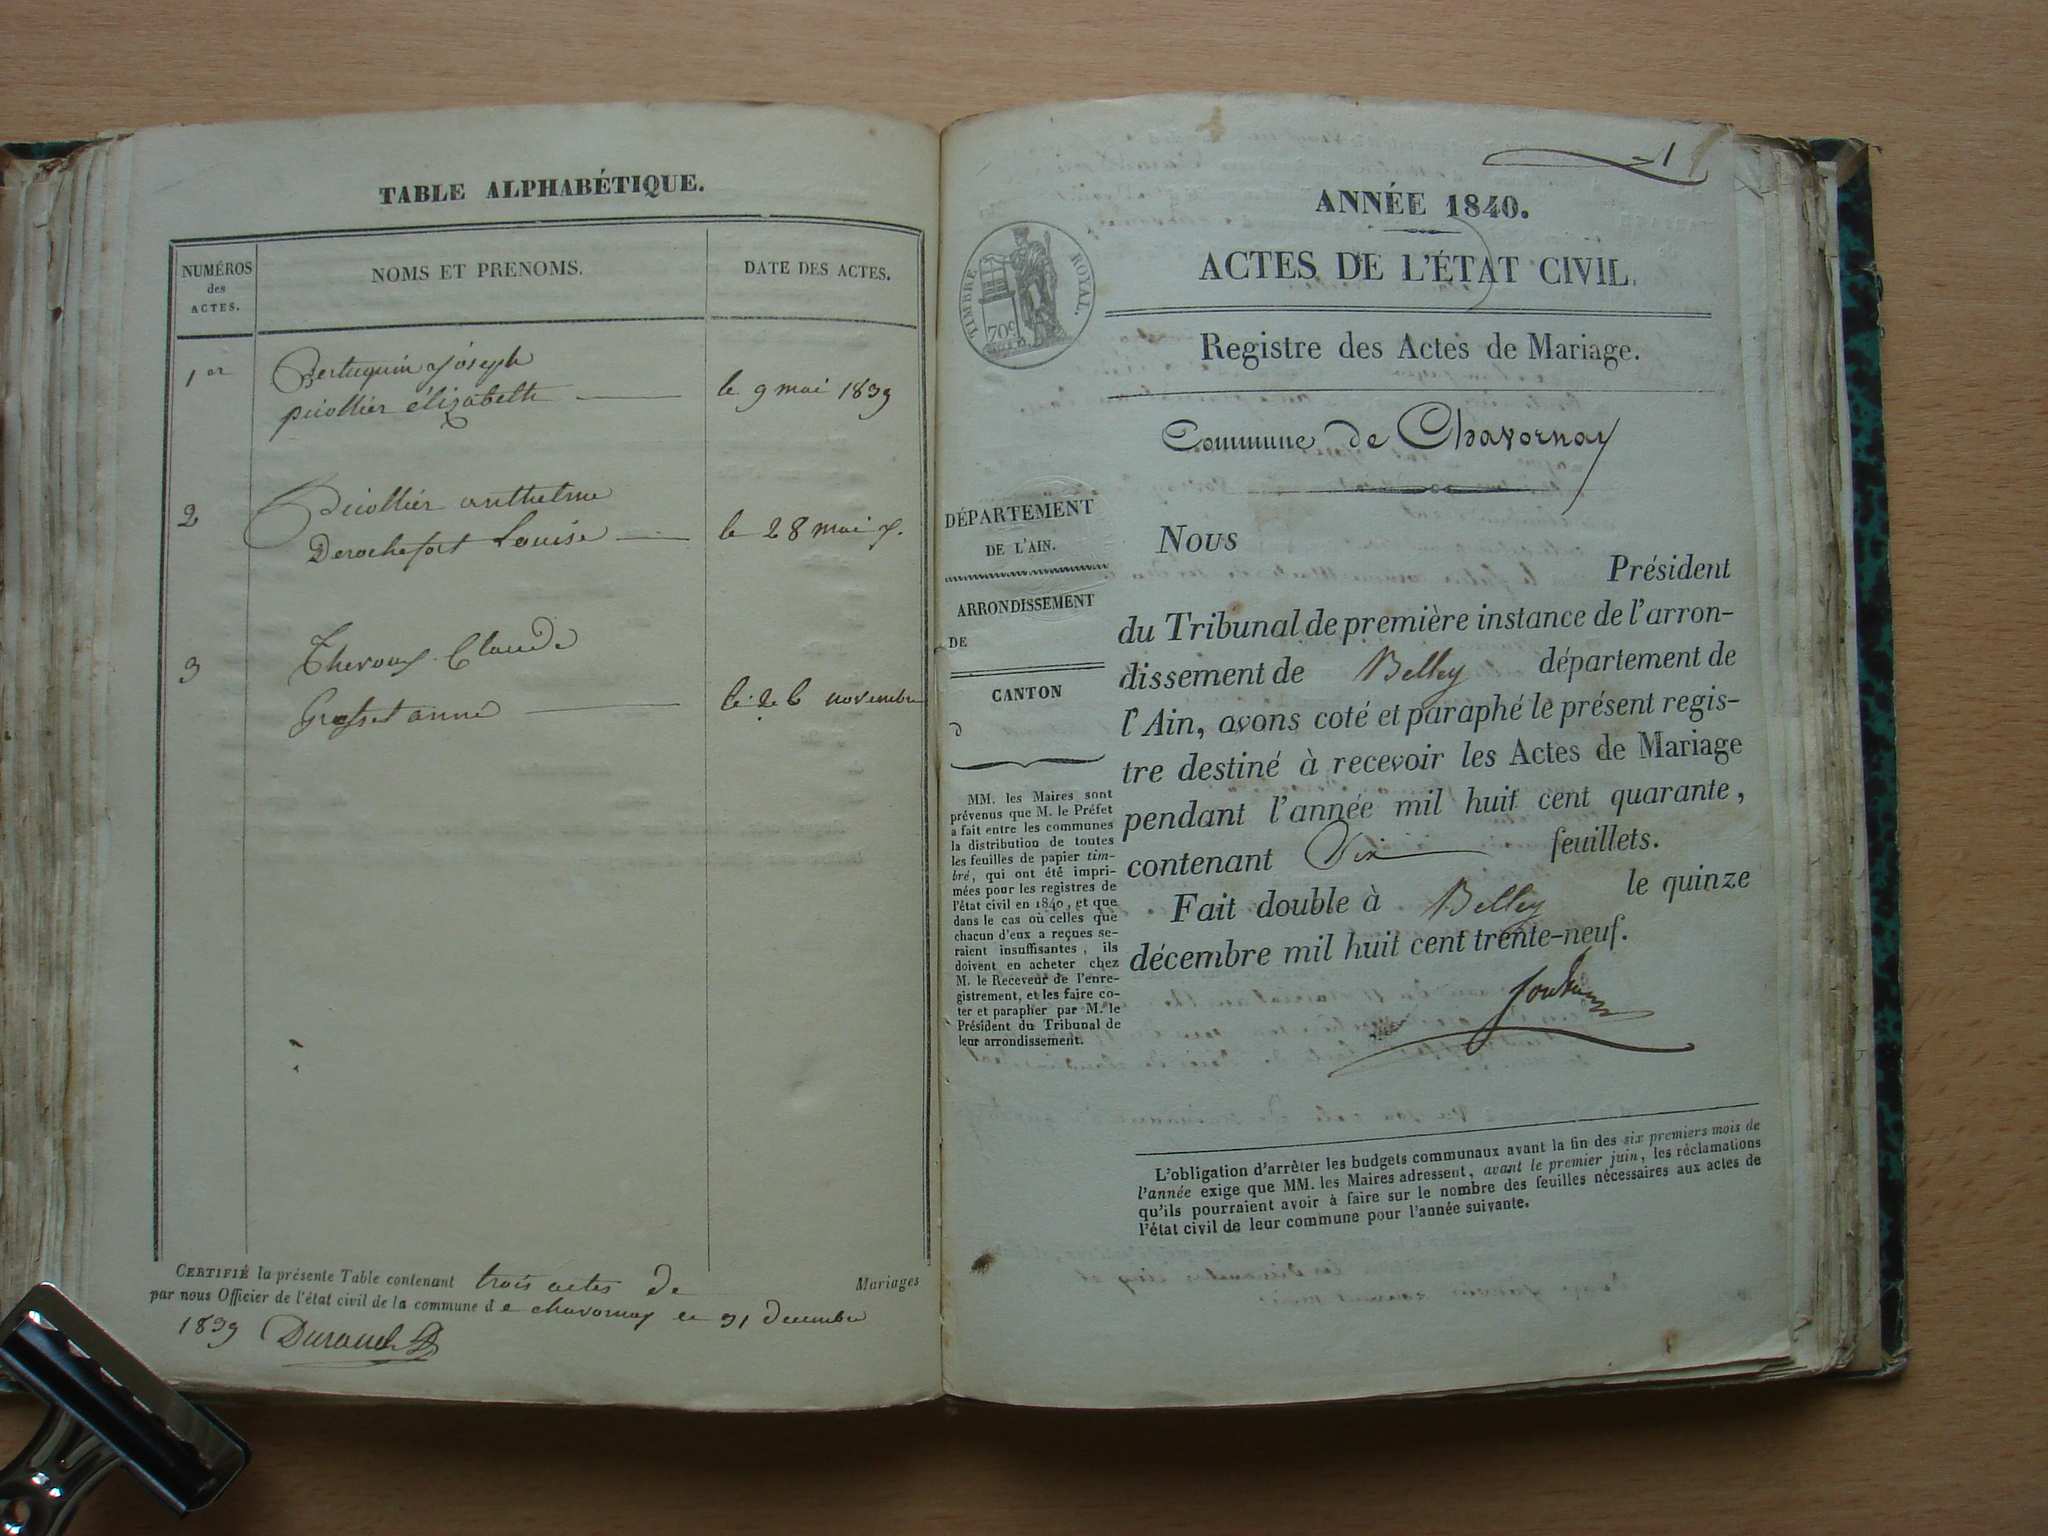 TABLE ALPHABÉTIQUE.
NUMÉROS
des
ACTES.
NOMS ET PRENOMS.
DATE DES ACTES.
1er
Bertuquin Joseph
picollier élizabeth
le 9 mai 1839
2
Picollier anthelme
Derochefort Louise
le 28 mai
3
Claude
anne
le 26 novembre
CERTIFIÉ la présente Table contenant trois actes de Mariages
par nous Officier de l'état civil de la commune de chavornay le 31 decembre
1839 Durand
1
ANNÉE 1840.
ACTES DE L'ÉTAT CIVIL.
TIMBRE ROYAL.
70c
Registre des Actes de Mariage.
Commune de Chavornay
DÉPARTEMENT
DE L'AIN.
ARRONDISSEMENT
DE
CANTON
d
MM. les Maires sont
prévenus que M. le Préfet
a fait entre les communes
la distribution de toutes
les feuilles de papier tim-
bré, qui ont été impri-
mées pour les registres de
l'état civil en 1840, et que
dans le cas où celles que
chacun d'eux a reçues se-
raient insuffisantes, ils
doivent en acheter chez
M. le Receveur de l'enre-
gistrement, et les faire co-
ter et parapher par M. le
Président du Tribunal de
leur arrondissement.
Nous
Président
du Tribunal de première instance de l'arron-
dissement de Belley département de
l'Ain, avons coté et paraphé le présent regis-
tre destiné à recevoir les Actes de Mariage
pendant l'année mil huit cent quarante,
contenant Dix feuillets.
Fait double à Belley le quinze
décembre mil huit cent trente-neuf.
L'obligation d'arrêter les budgets communaux avant la fin des six premiers mois de
l'année exige que MM. les Maires adressent, avant le premier juin, les réclamations
qu'ils pourraient avoir à faire sur le nombre des feuilles nécessaires aux actes de
l'état civil de leur commune pour l'année suivante.